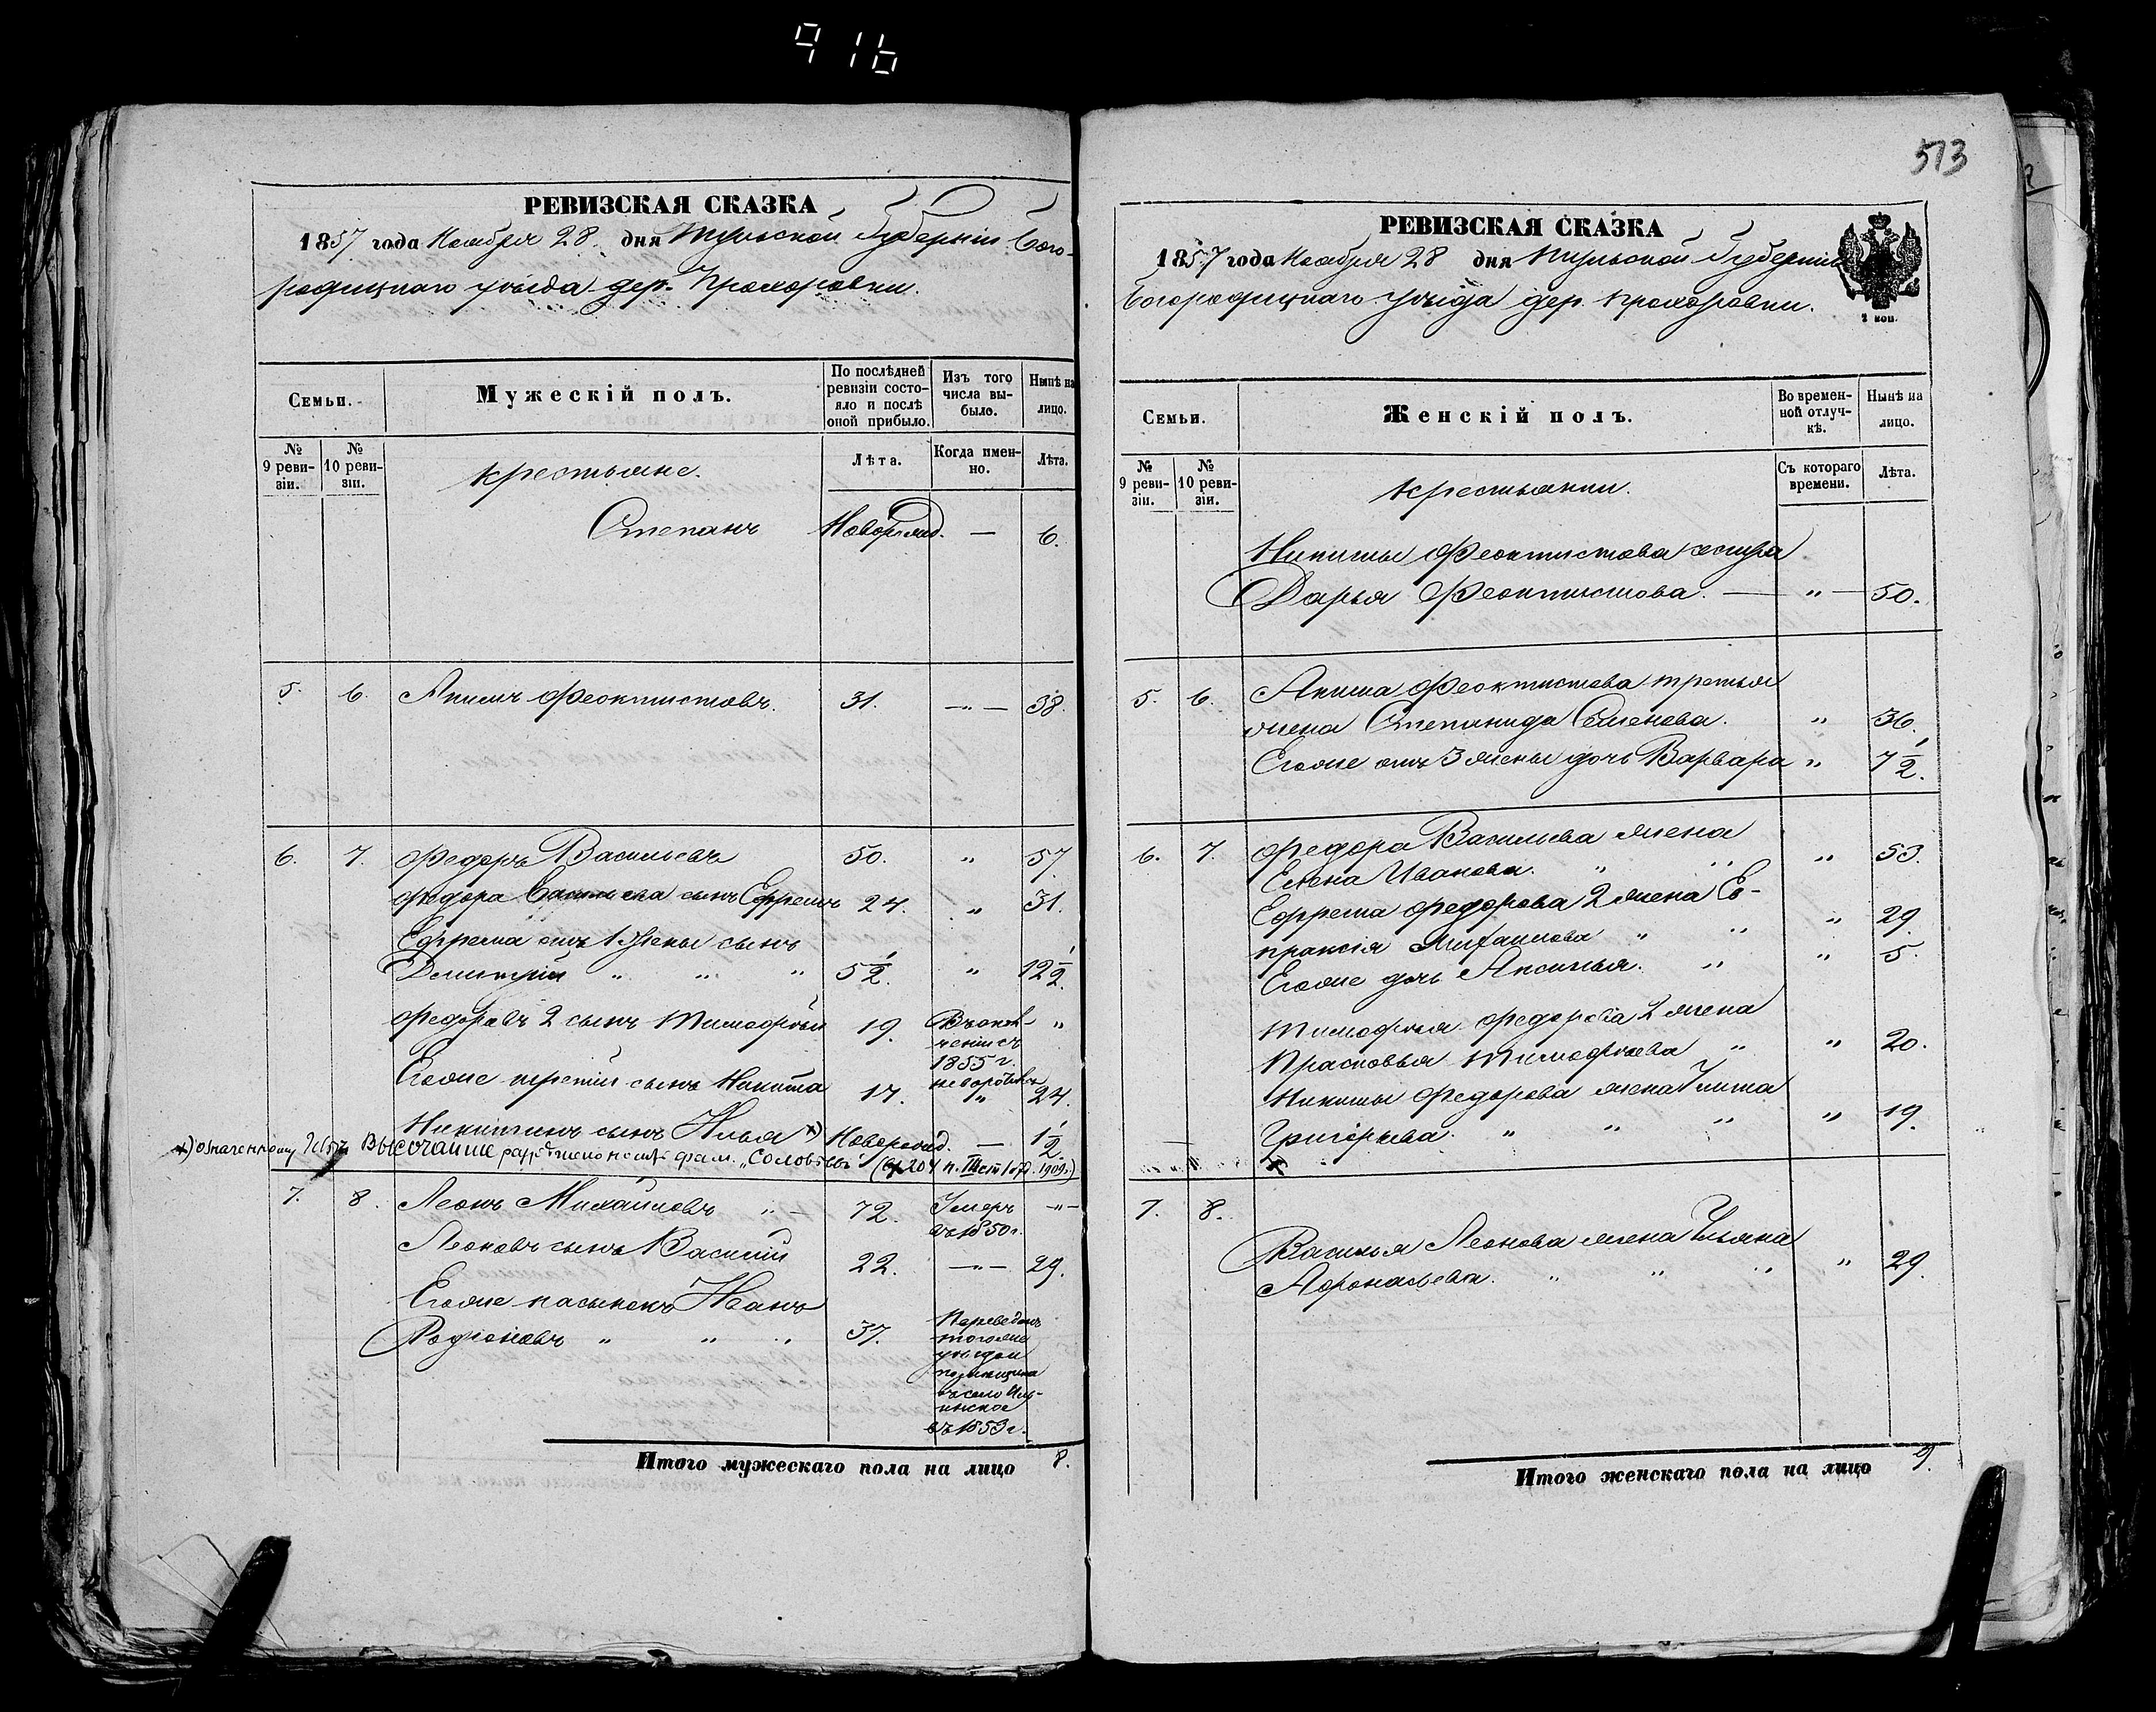 916
РЕВИЗСКАЯ СКАЗКА
1857 года Ноября 28 дня Тульской Губерніи Бого-
родицкаго уѣзда дер. Прохоровки.
Семьи.
Мужескій полъ.
По послѣдней ревизіи состо-яло и послѣ оной прибыло.
Изъ того числа вы-было.
Нынѣ на лицо.
№ 9 реви-зіи.
№ 10 реви-зіи.
Крестьяне.
Лѣта.
Когда имен-но.
Лѣта.
Степанъ Новорожд. — 6.
5. 6. Акимъ Феоктистовъ. 31. —„— 38.
6. 7. Федоръ Васильевъ 50. „ 57.
Федора Васильева сынъ Ефремъ 24. „ 31.
Ефрема отъ 1 жены сынъ
Дмитрій „ „ „ 5 1/2. „ 12 1/2.
Федоровъ 2 сынъ Тимофѣй 19. „
1855 г.
Егоже третій сынъ Никита 17. „ 24.
Никитинъ сынъ Илья х) Новорожд. — 1 1/2.
х) означенному Ильѣ Высочайше фам. „Соловьевъ"
1909г.)
7. 8. Леонъ Михайловъ „ — 72. Умеръ —„—
въ 1850 г.
Леоновъ сынъ Василій 22. —„— 29.
Егоже пасынокъ Иванъ
Родіоновъ „ „ „ 37. Переведенъ
тогоже
уѣзда
помѣщика
въ село
въ 1853 г.
Итого мужескаго пола на лицо 8.
513
РЕВИЗСКАЯ СКАЗКА
1857 года Ноября 28 дня Тульской Губерніи
Богородицкаго уѣзда дер. Прохоровки.
2 коп.
Семьи.
Женскій полъ.
Во времен-ной отлуч-кѣ.
Нынѣ на лицо.
№ 9 реви-зіи.
№ 10 реви-зіи.
Крестьянки.
Съ котораго времени.
Лѣта.
Никиты Феоктистова сестра
Дарья Феоктистова. — „ — 50.
5. 6. Акима Феоктистова третья
жена Степанида Семенова. „ 36.
Егоже отъ 3 жены дочь Варвара „ 7 1/2.
6. 7. Федора Васильева жена
Елена Иванова. „ „ „ 53.
Ефрема Федорова 2 жена Ев-
праксія Михайлова „ „ „ 29.
Егоже дочь Аксинья. „ „ 5.
Тимофѣя Федорова 2 жена
Прасковья Тимофѣева „ „ 20.
Никиты Федорова жена Улита
Григорьева. „ „ „ „ 19.
7. 8.
Василья Леонова жена Ульяна
Афонасьева. „ „ „ „ 29.
Итого женскаго пола на лицо 9.